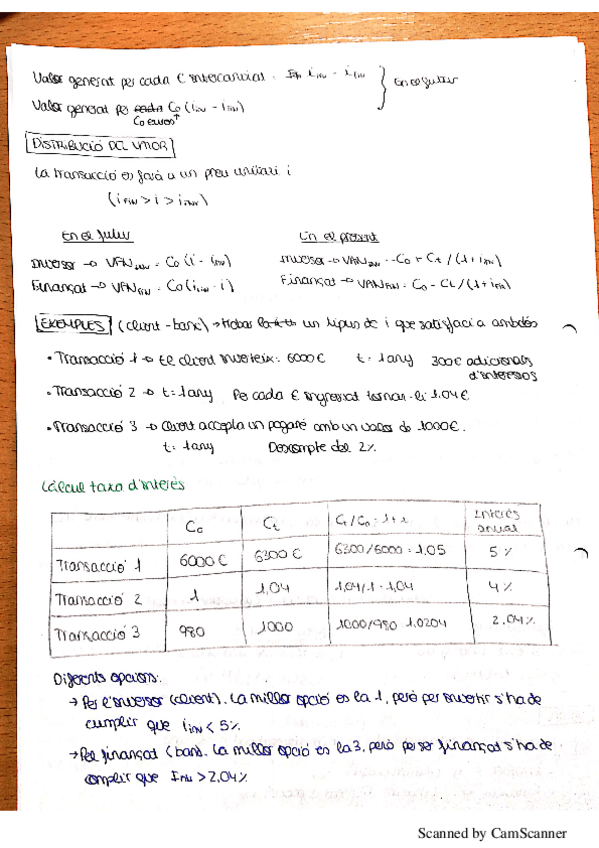 Valor generat per cada € intercanviat = i_fin - i_inv } En el futur
Valor generat per cada C0 (i_fin - i_inv)
C0 euros ↑
DISTRIBUCIÓ DEL VALOR
La transacció es farà a un preu unitari i
(i_fin > i > i_inv)
En el futur En el present
Inversor → VFN_inv = C0 (i - i_inv) Inversor → VAN_inv = -C0 + Ct / (1 + i_inv)
Finançat → VFN_fin = C0 (i_fin - i) Finançat → VAN_fin = C0 - Ct / (1 + i_fin)
EXEMPLES (client - banc) → trobar un tipus de i que satisfaci a ambdós
• Transacció 1 → El client inverteix: 6000 € t = 1 any 300€ addicionals
d'interessos
• Transacció 2 → t = 1 any Per cada € ingressat tornar-li 1.04€
• Transacció 3 → Client accepta un pagaré amb un valor de 1000€.
t = 1 any Descompte del 2%
Càlcul taxa d'interès
C0 Ct Ct / C0 = 1 + i Interès anual
Transacció 1 6000 € 6300 € 6300/6000 = 1.05 5%
Transacció 2 1 1,04 1,04/1 = 1,04 4%
Transacció 3 980 1000 1000/980 = 1.0204 2.04%
Diferents opcions:
→ Per l'inversor (client). La millor opció es la 1, però per invertir s'ha de
cumplir que i_inv < 5%
→ Pel finançat (banc). La millor opció es la 3, però per ser finançat s'ha de
complir que i_fin > 2,04%
Scanned by CamScanner